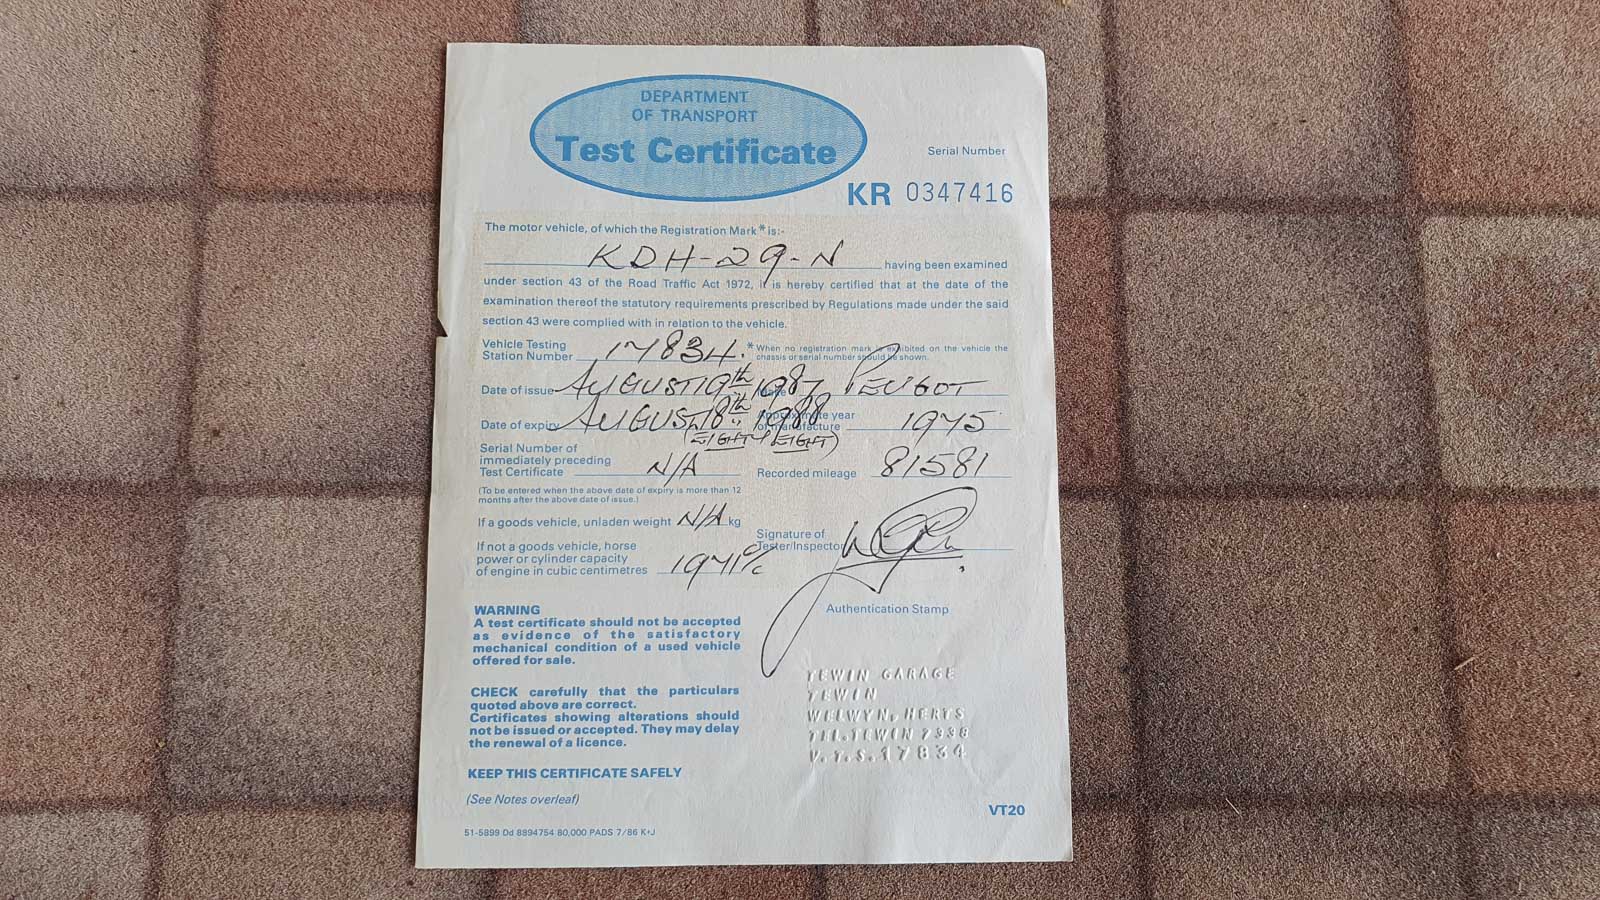 DEPARTMENT
OF TRANSPORT
Test Certificate
Serial Number
KR 0347416
The motor vehicle, of which the Registration Mark * is:-
KDH-29-N having been examined
under section 43 of the Road Traffic Act 1972, it is hereby certified that at the date of the
examination thereof the statutory requirements prescribed by Regulations made under the said
section 43 were complied with in relation to the vehicle.
Vehicle Testing
Station Number 17834.
* When no registration mark is exhibited on the vehicle the
chassis or serial number should be shown.
Date of issue AUGUST 19th 1987
Make PEUGOT
Date of expiry AUGUST 18th 1988
(EIGHTY EIGHT)
Approximate year
of manufacture 1975
Serial Number of
immediately preceding
Test Certificate N/A
Recorded mileage 81581
(To be entered when the above date of expiry is more than 12
months after the above date of issue.)
If a goods vehicle, unladen weight N/A kg
Signature of
Tester/Inspector
If not a goods vehicle, horse
power or cylinder capacity
of engine in cubic centimetres 1971
Authentication Stamp
WARNING
A test certificate should not be accepted
as evidence of the satisfactory
mechanical condition of a used vehicle
offered for sale.
CHECK carefully that the particulars
quoted above are correct.
Certificates showing alterations should
not be issued or accepted. They may delay
the renewal of a licence.
KEEP THIS CERTIFICATE SAFELY
(See Notes overleaf)
TEWIN GARAGE
TEWIN
WELWYN, HERTS
TEL. TEWIN 7338
V.T.S. 17834
VT20
51-5899 Dd 8894754 80,000 PADS 7/86 K+J